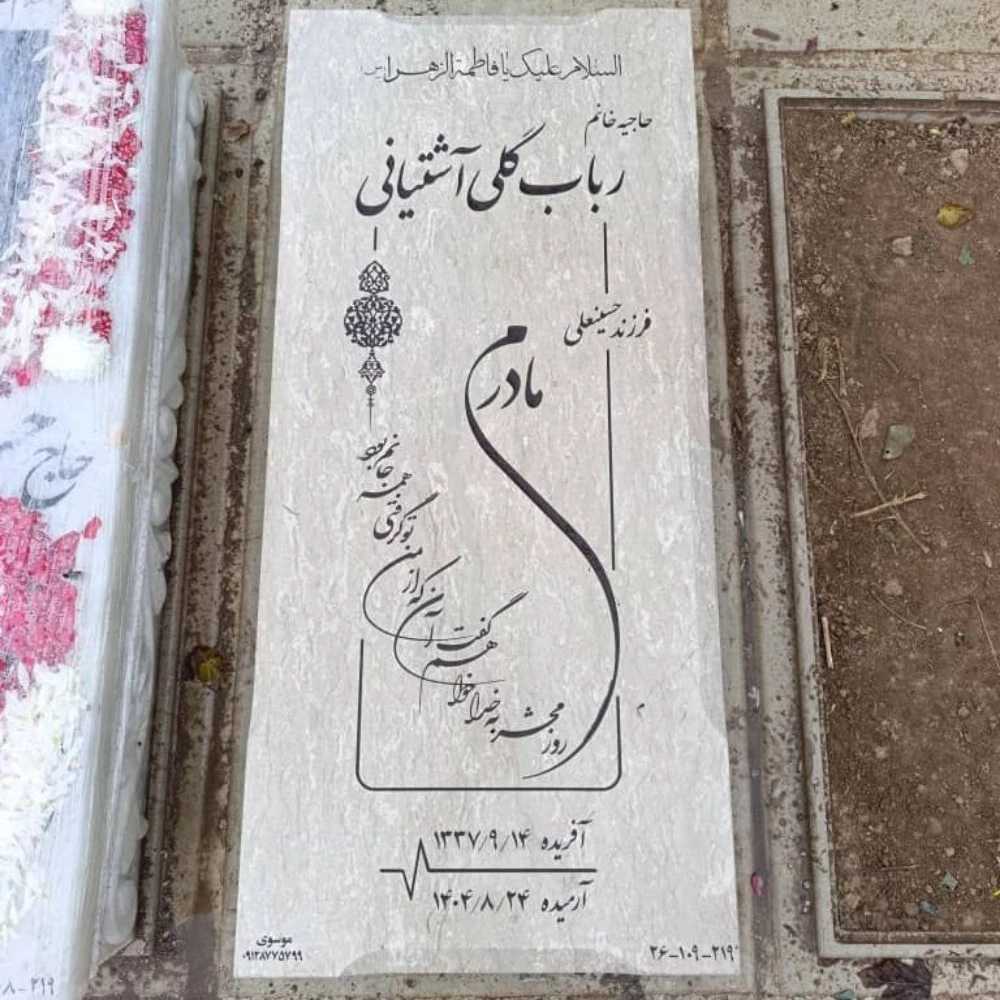 السلام علیک یا فاطمة الزهرا (س)
حاجیه خانم
رباب گلی آشتیانی
فرزند حسینعلی
مادرم
روز محشر به خدا خواهم گفت
آن که از من تو گرفتی همه جانم بود
آفریده ۱۳۳۷/۹/۱۴
آرمیده ۱۴۰۴/۸/۲۴
موسوی
۰۹۱۲۸۷۷۵۷۹۹
۲۶-۱۰۹-۲۱۹
حاج